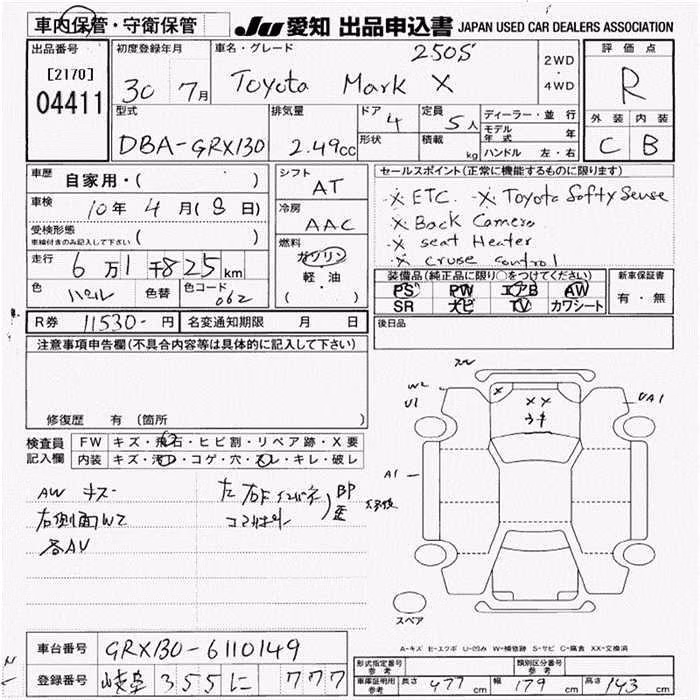 車内保管・守衛保管
JU 愛知 出品申込書 JAPAN USED CAR DEALERS ASSOCIATION
出品番号
[2170]
04411
初度登録年月
30 7月
車名・グレード
250S
Toyota Mark X
2WD
・
4WD
評価点
R
外装 内装
C B
型式
DBA-GRX130
排気量
2.49cc
ドア
4
形状
定員
5人
積載
kg
ディーラー・並行
モデル年式 年
ハンドル 左・右
車歴
自家用・( )
車検
10年 4月(8日)
受検形態
車検付きのみ記入して下さい ( )
走行
6万1千825km
色 パール 色替 色コード 062
シフト
AT
冷房
AAC
燃料
ガソリン
軽・油
( )
セールスポイント(正常に機能するものに限ります)
·X· ETC. ·X· Toyota Softy Sense
·X· Back Camera
·X· seat Heater
·X· cruise control
装備品(純正品に限り○をつけてください)
PS PW エアB AW
SR ナビ TV カワシート
新車保証書
有・無
R券 11530-円
名変通知期限 月 日
後日品
注意事項申告欄(不具合内容等は具体的に記入して下さい)
修復歴 有 (箇所 )
検査員記入欄
FW キズ・飛石・ヒビ割・リペア跡・X要
内装 キズ・汚レ・コゲ・穴・スレ・キレ・破レ
AW キズ
右側面W2
各AU
左右Fインパネ
BP
W2
U1
X
XX
UA1
A1
スペア
A-キズ E-エクボ U-凹み W-補修跡 S-サビ C-腐食 XX-交換済
車台番号
GRX130-6110149
登録番号
岐阜 355 に 777
形式指定番号
参考
類別区分番号
参考
車庫証明用
参考
長さ 477cm
幅 179cm
高さ 143cm